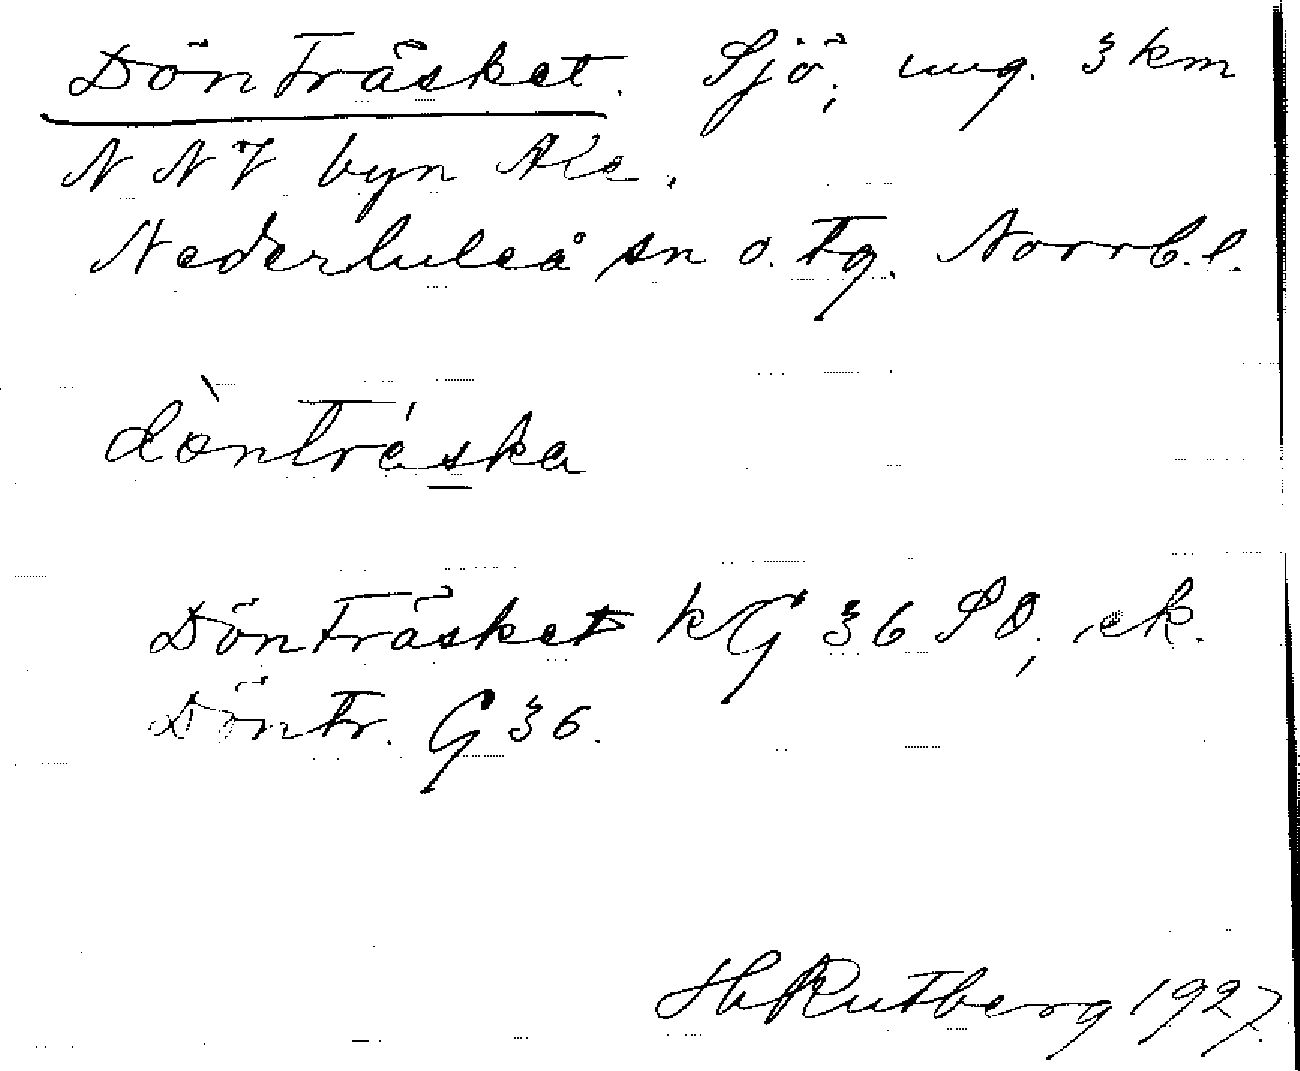 Dönträsket. Sjö, ung. 3 km
N N V byn Ale.
Nederluleå sn o. tg. Norrb. l.
dònträ́ska
Dönträsket k G 36 SO, ek.
Döntr. G 36.
Hb Rutberg 1927.